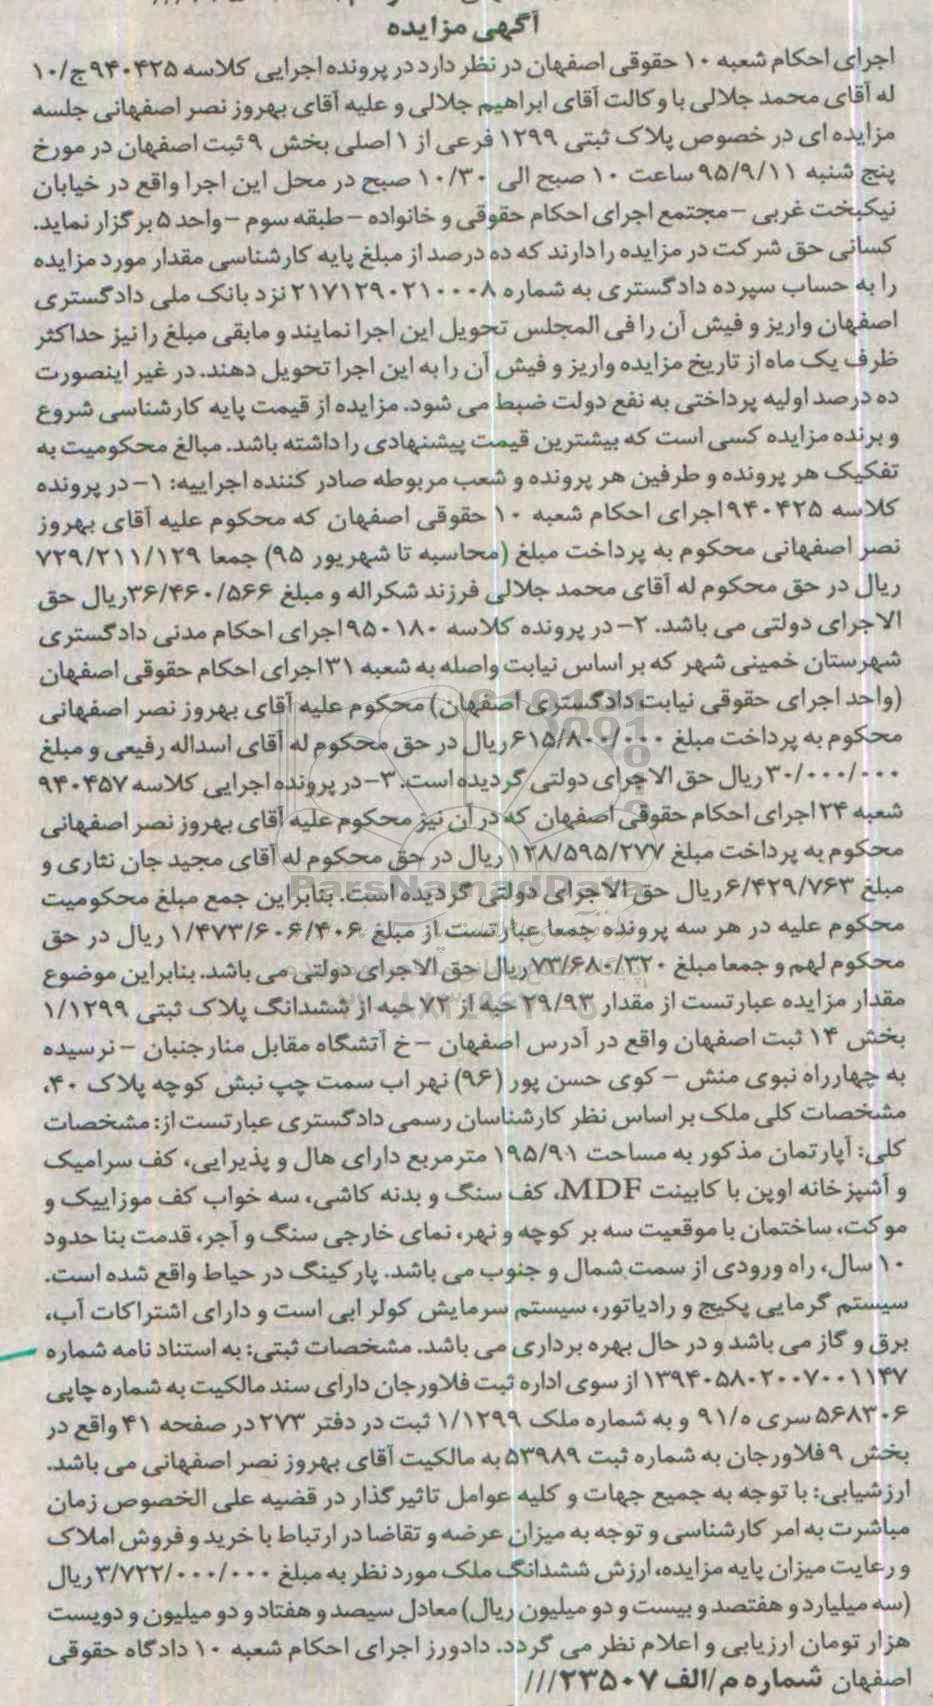 آگهی مزایده
اجرای احکام شعبه ۱۰ حقوقی اصفهان در نظر دارد در پرونده اجرایی کلاسه ۹۴۰۴۲۵ج/۱۰
له آقای محمد جلالی با وکالت آقای ابراهیم جلالی و علیه آقای بهروز نصر اصفهانی جلسه
مزایده ای در خصوص پلاک ثبتی ۱۲۹۹ فرعی از ۱ اصلی بخش ۹ ثبت اصفهان در مورخ
پنج شنبه ۹۵/۹/۱۱ ساعت ۱۰ صبح الی ۱۰/۳۰ صبح در محل این اجرا واقع در خیابان
نیکبخت غربی – مجتمع اجرای احکام حقوقی و خانواده – طبقه سوم – واحد ۵ برگزار نماید.
کسانی حق شرکت در مزایده را دارند که ده درصد از مبلغ پایه کارشناسی مقدار مورد مزایده
را به حساب سپرده دادگستری به شماره ۲۱۷۱۲۹۰۲۱۰۰۰۸ نزد بانک ملی دادگستری
اصفهان واریز و فیش آن را فی المجلس تحویل این اجرا نمایند و مابقی مبلغ را نیز حداکثر
ظرف یک ماه از تاریخ مزایده واریز و فیش آن را به این اجرا تحویل دهند. در غیر اینصورت
ده درصد اولیه پرداختی به نفع دولت ضبط می شود. مزایده از قیمت پایه کارشناسی شروع
و برنده مزایده کسی است که بیشترین قیمت پیشنهادی را داشته باشد. مبالغ محکومیت به
تفکیک هر پرونده و طرفین هر پرونده و شعب مربوطه صادر کننده اجراییه: ۱- در پرونده
کلاسه ۹۴۰۴۲۵ اجرای احکام شعبه ۱۰ حقوقی اصفهان که محکوم علیه آقای بهروز
نصر اصفهانی محکوم به پرداخت مبلغ (محاسبه تا شهریور ۹۵) جمعا ۷۲۹/۲۱۱/۱۲۹
ریال در حق محکوم له آقای محمد جلالی فرزند شکراله و مبلغ ۳۶/۴۶۰/۵۶۶ ریال حق
الاجرای دولتی می باشد. ۲- در پرونده کلاسه ۹۵۰۱۸۰ اجرای احکام مدنی دادگستری
شهرستان خمینی شهر که بر اساس نیابت واصله به شعبه ۳۱ اجرای احکام حقوقی اصفهان
(واحد اجرای حقوقی نیابت دادگستری اصفهان) محکوم علیه آقای بهروز نصر اصفهانی
محکوم به پرداخت مبلغ ۶۱۵/۸۰۰/۰۰۰ ریال در حق محکوم له آقای اسداله رفیعی و مبلغ
۳۰/۰۰۰/۰۰۰ ریال حق الاجرای دولتی گردیده است. ۳- در پرونده اجرایی کلاسه ۹۴۰۴۵۷
شعبه ۲۴ اجرای احکام حقوقی اصفهان که در آن نیز محکوم علیه آقای بهروز نصر اصفهانی
محکوم به پرداخت مبلغ ۱۲۸/۵۹۵/۲۷۷ ریال در حق محکوم له آقای مجید جان نثاری و
مبلغ ۶/۴۲۹/۷۶۳ ریال حق الاجرای دولتی گردیده است. بنابراین جمع مبلغ محکومیت
محکوم علیه در هر سه پرونده جمعا عبارتست از مبلغ ۱/۴۷۳/۶۰۶/۴۰۶ ریال در حق
محکوم لهم و جمعا مبلغ ۷۳/۶۸۰/۳۲۰ ریال حق الاجرای دولتی می باشد. بنابراین موضوع
مقدار مزایده عبارتست از مقدار ۲۹/۹۳ حبه از ۷۲ حبه از ششدانگ پلاک ثبتی ۱/۱۲۹۹
بخش ۱۴ ثبت اصفهان واقع در آدرس اصفهان – خ آتشگاه مقابل منارجنبان – نرسیده
به چهارراه نبوی منش – کوی حسن پور (۹۶) نهر اب سمت چپ نبش کوچه پلاک ۴۰،
مشخصات کلی ملک بر اساس نظر کارشناسان رسمی دادگستری عبارتست از: مشخصات
کلی: آپارتمان مذکور به مساحت ۱۹۵/۹۱ مترمربع دارای هال و پذیرایی، کف سرامیک
و آشپزخانه اوپن با کابینت MDF، کف سنگ و بدنه کاشی، سه خواب کف موزاییک و
موکت، ساختمان با موقعیت سه بر کوچه و نهر، نمای خارجی سنگ و آجر، قدمت بنا حدود
۱۰ سال، راه ورودی از سمت شمال و جنوب می باشد. پارکینگ در حیاط واقع شده است.
سیستم گرمایی پکیج و رادیاتور، سیستم سرمایش کولر ابی است و دارای اشتراکات آب،
برق و گاز می باشد و در حال بهره برداری می باشد. مشخصات ثبتی: به استناد نامه شماره
۱۳۹۴۰۵۸۰۲۰۰۷۰۰۱۱۴۷ از سوی اداره ثبت فلاورجان دارای سند مالکیت به شماره چاپی
۵۶۸۳۰۶ سری ه/۹۱ و به شماره ملک ۱/۱۲۹۹ ثبت در دفتر ۲۷۳ در صفحه ۴۱ واقع در
بخش ۹ فلاورجان به شماره ثبت ۵۳۹۸۹ به مالکیت آقای بهروز نصر اصفهانی می باشد.
ارزشیابی: با توجه به جمیع جهات و کلیه عوامل تاثیرگذار در قضیه علی الخصوص زمان
مباشرت به امر کارشناسی و توجه به میزان عرضه و تقاضا در ارتباط با خرید و فروش املاک
و رعایت میزان پایه مزایده، ارزش ششدانگ ملک مورد نظر به مبلغ ۳/۷۲۲/۰۰۰/۰۰۰ ریال
(سه میلیارد و هفتصد و بیست و دو میلیون ریال) معادل سیصد و هفتاد و دو میلیون و دویست
هزار تومان ارزیابی و اعلام نظر می گردد. دادورز اجرای احکام شعبه ۱۰ دادگاه حقوقی
اصفهان شماره م/الف ۲۳۵۰۷///
ParsNamadData